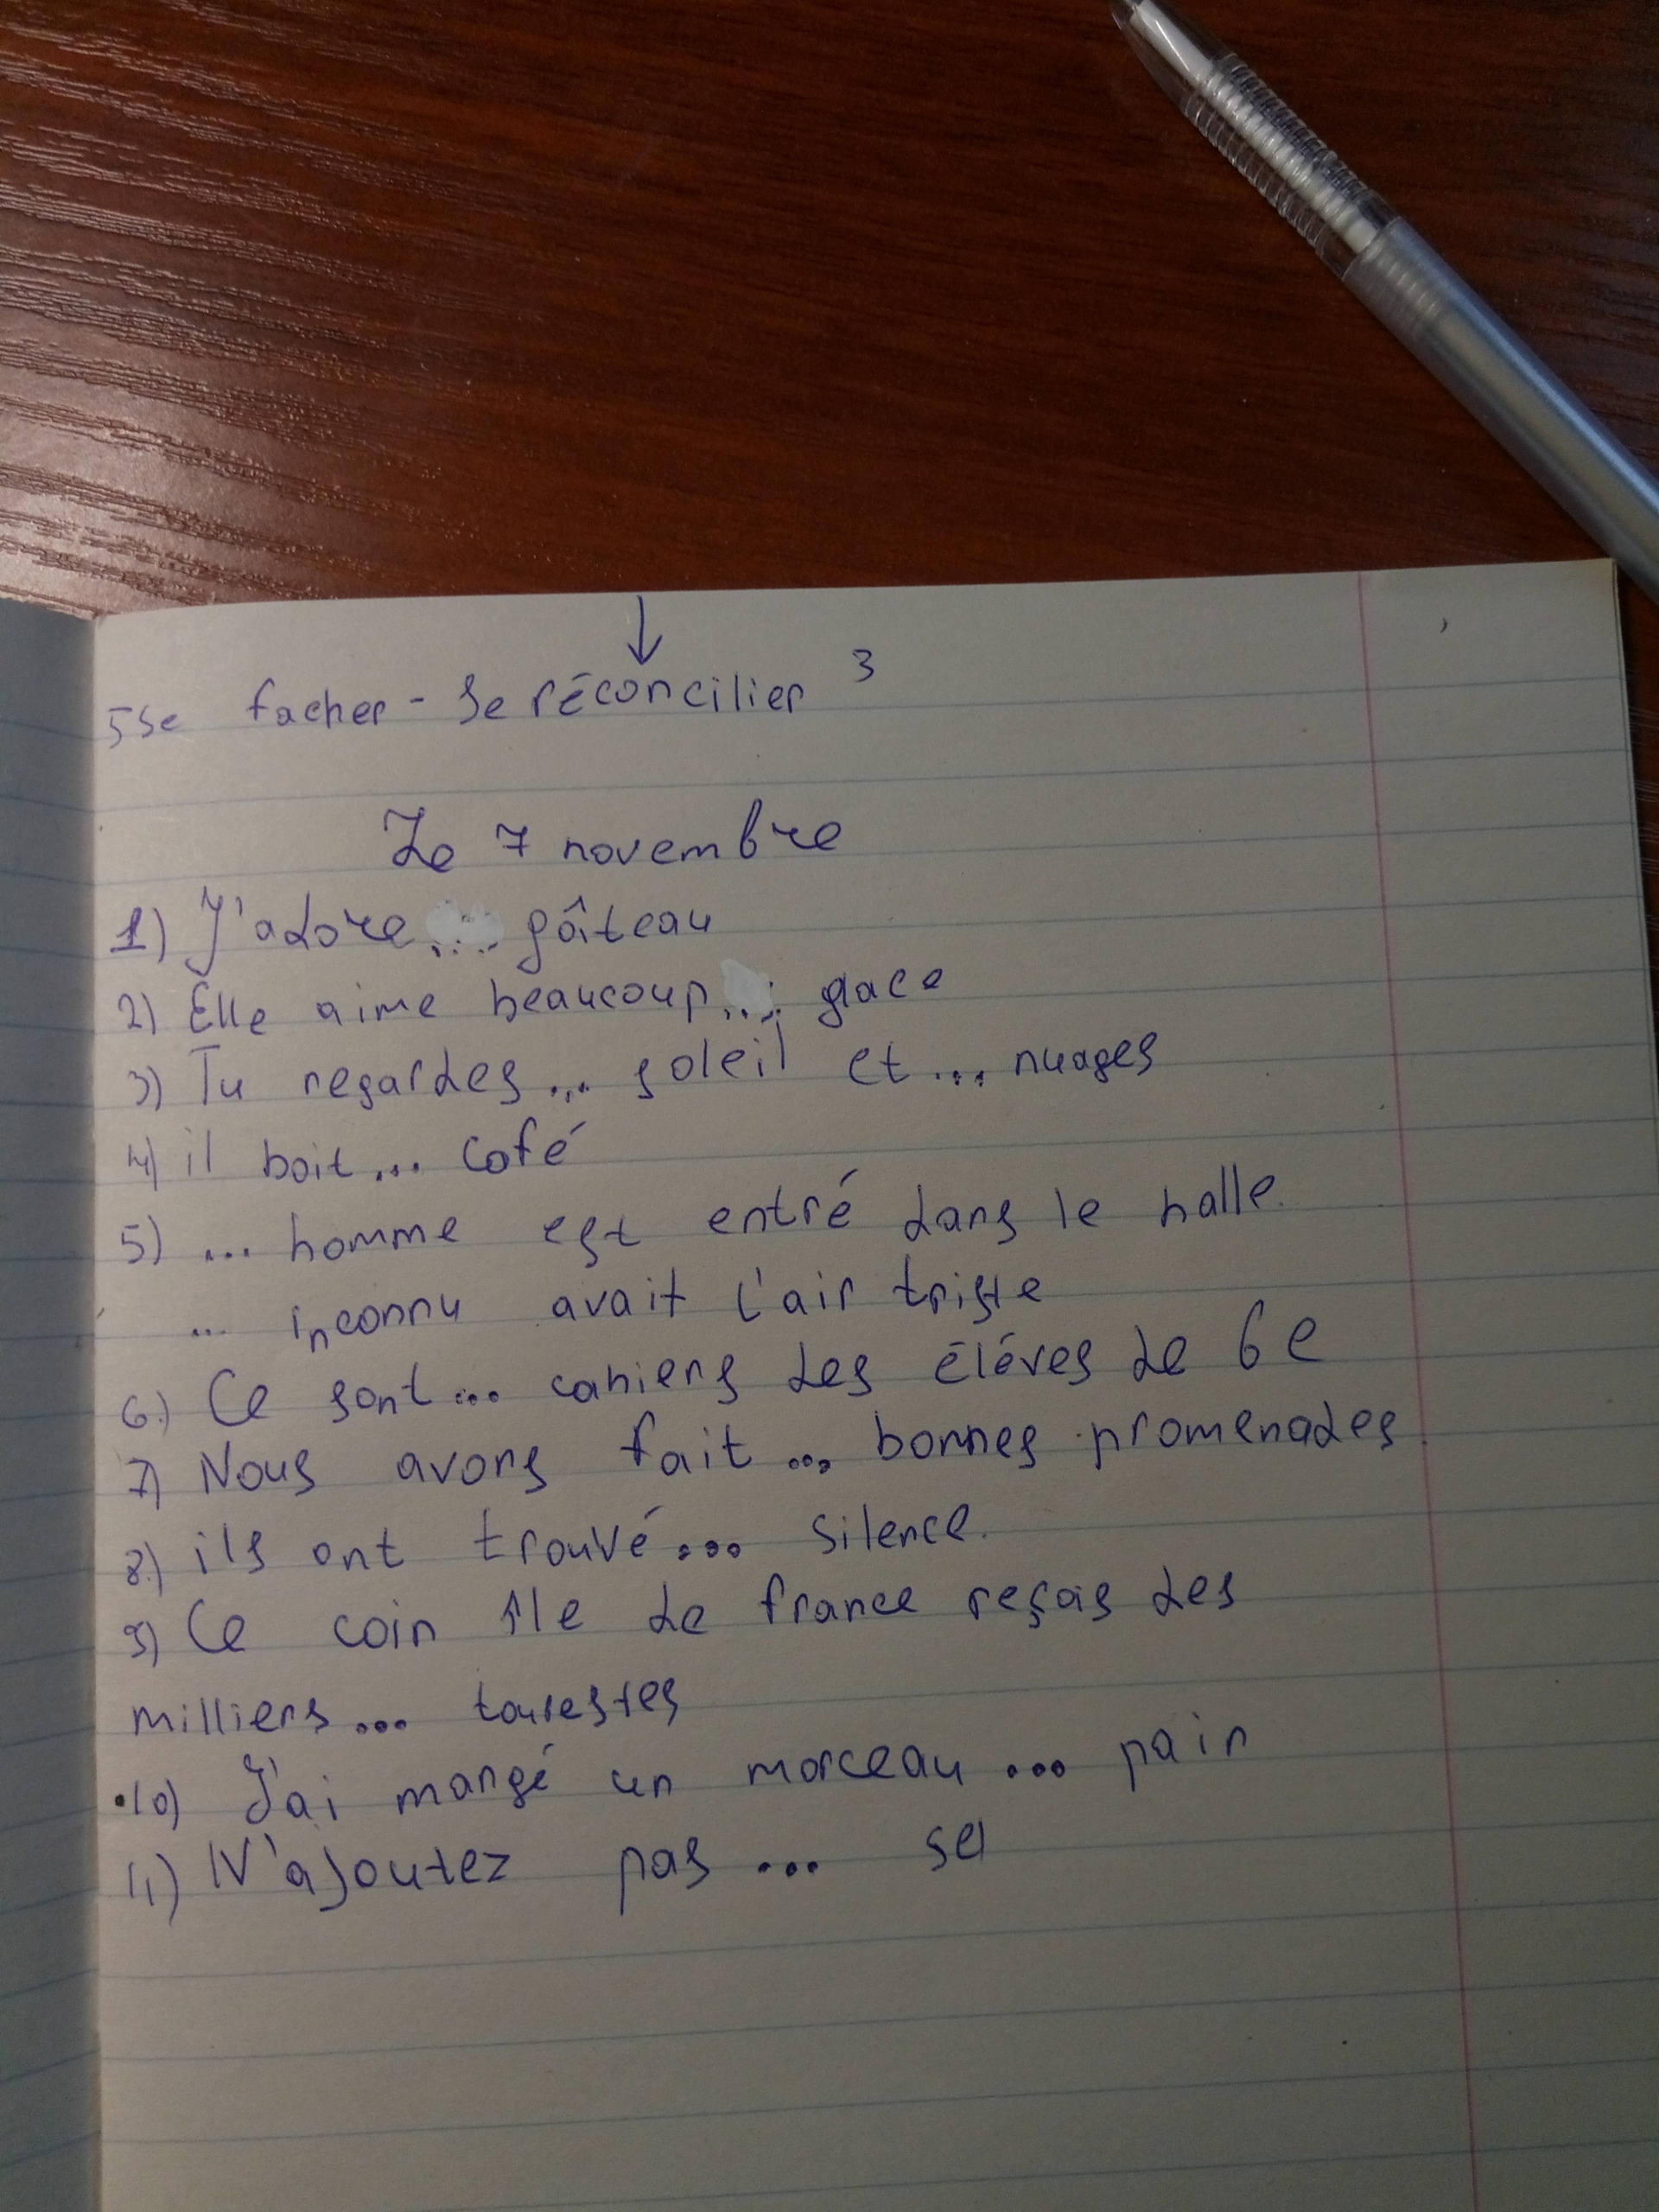 5 se facher - se réconcilier 3
Le 7 novembre
1) J'adore .... gâteau
2) Elle aime beaucoup ... glace
3) Tu regardes ... soleil et ... nuages
4) il boit ... café
5) ... homme est entré dans le halle.
... inconnu avait l'air triste
6.) Ce sont ... cahiers des éléves de 6e
7) Nous avons fait ... bonnes promenades.
8.) ils ont trouvé ... silence.
9) Ce coin île de france reçois des
milliers ... tourestes
10) J'ai mangé un morceau ... pain
11) N'ajoutez pas ... sel